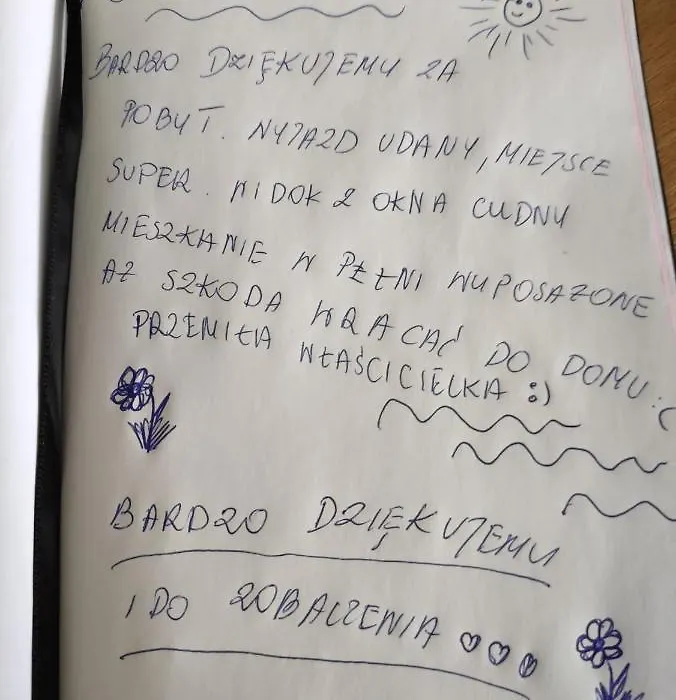 BARDZO DZIĘKUJEMY ZA
POBYT. WYJAZD UDANY, MIEJSCE
SUPER. WIDOK Z OKNA CUDNY
MIESZKANIE W PEŁNI WYPOSAŻONE
AŻ SZKODA WRACAĆ DO DOMU :(
PRZEMIŁA WŁAŚCICIELKA :)
BARDZO DZIĘKUJEMY
I DO ZOBACZENIA